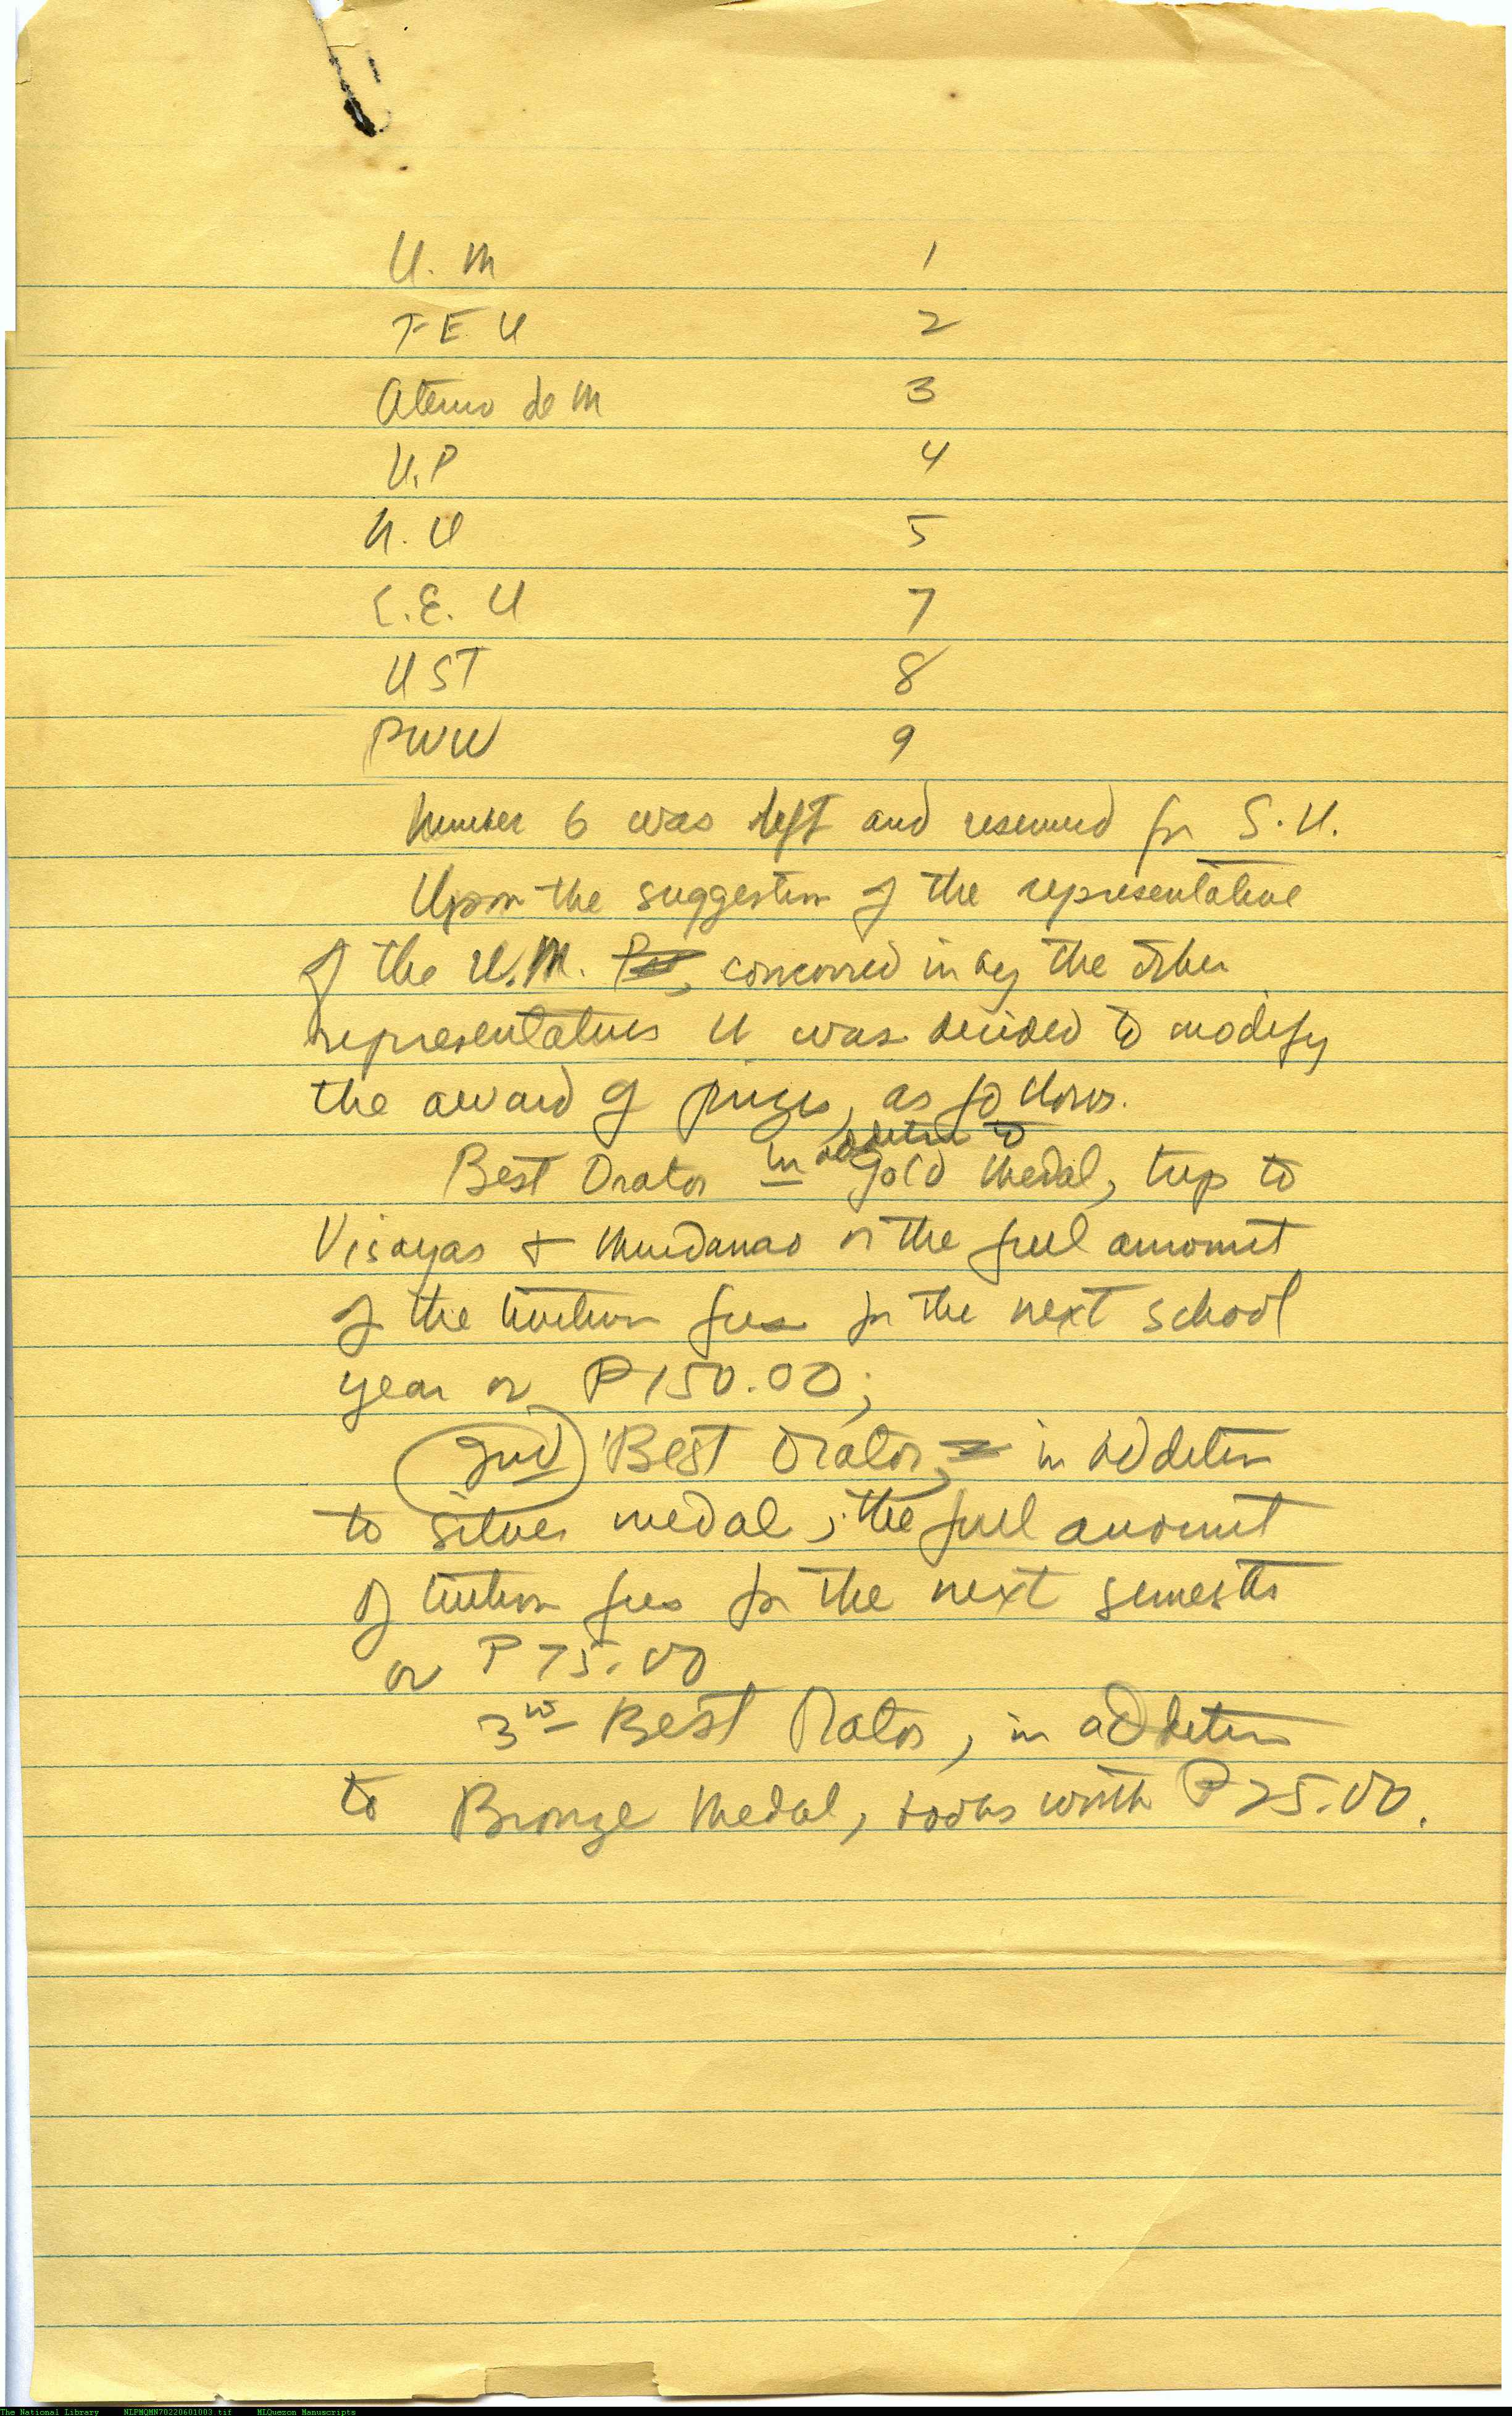 U. M 1
F E U 2
Ateneo de M 3
U.P 4
N. U 5
C. E. U 7
UST 8
PWU 9
Number 6 was left and reserved for S. U.
Upon the suggestion of the representative
of the U.M. , concurred in by the other
representatives it was decided to modify
the award of prizes, as follows.
Best Orator in addition to Gold Medal, trip to
Visayas + Mindanao or the full amount
of the tuition fees for the next school
year or ₱150.00;
2nd Best Orator, in addition
to silver medal, the full amount
of tuition fees for the next semester
or ₱75.00
3rd Best Orator, in addition
to Bronze Medal, books worth ₱25.00.
The National Library NLPMQMN70220601003.tif MLQuezon Manuscripts